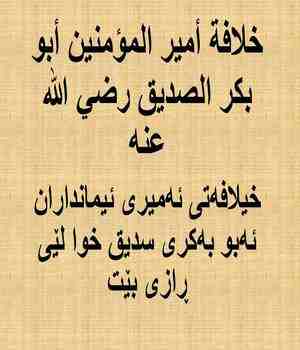 خلافة أمير المؤمنين أبو
بكر الصديق رضي الله
عنه
خيلافەتى ئەميرى ئيمانداران
ئەبو بەكرى سديق خوا لێى
ڕازى بێت